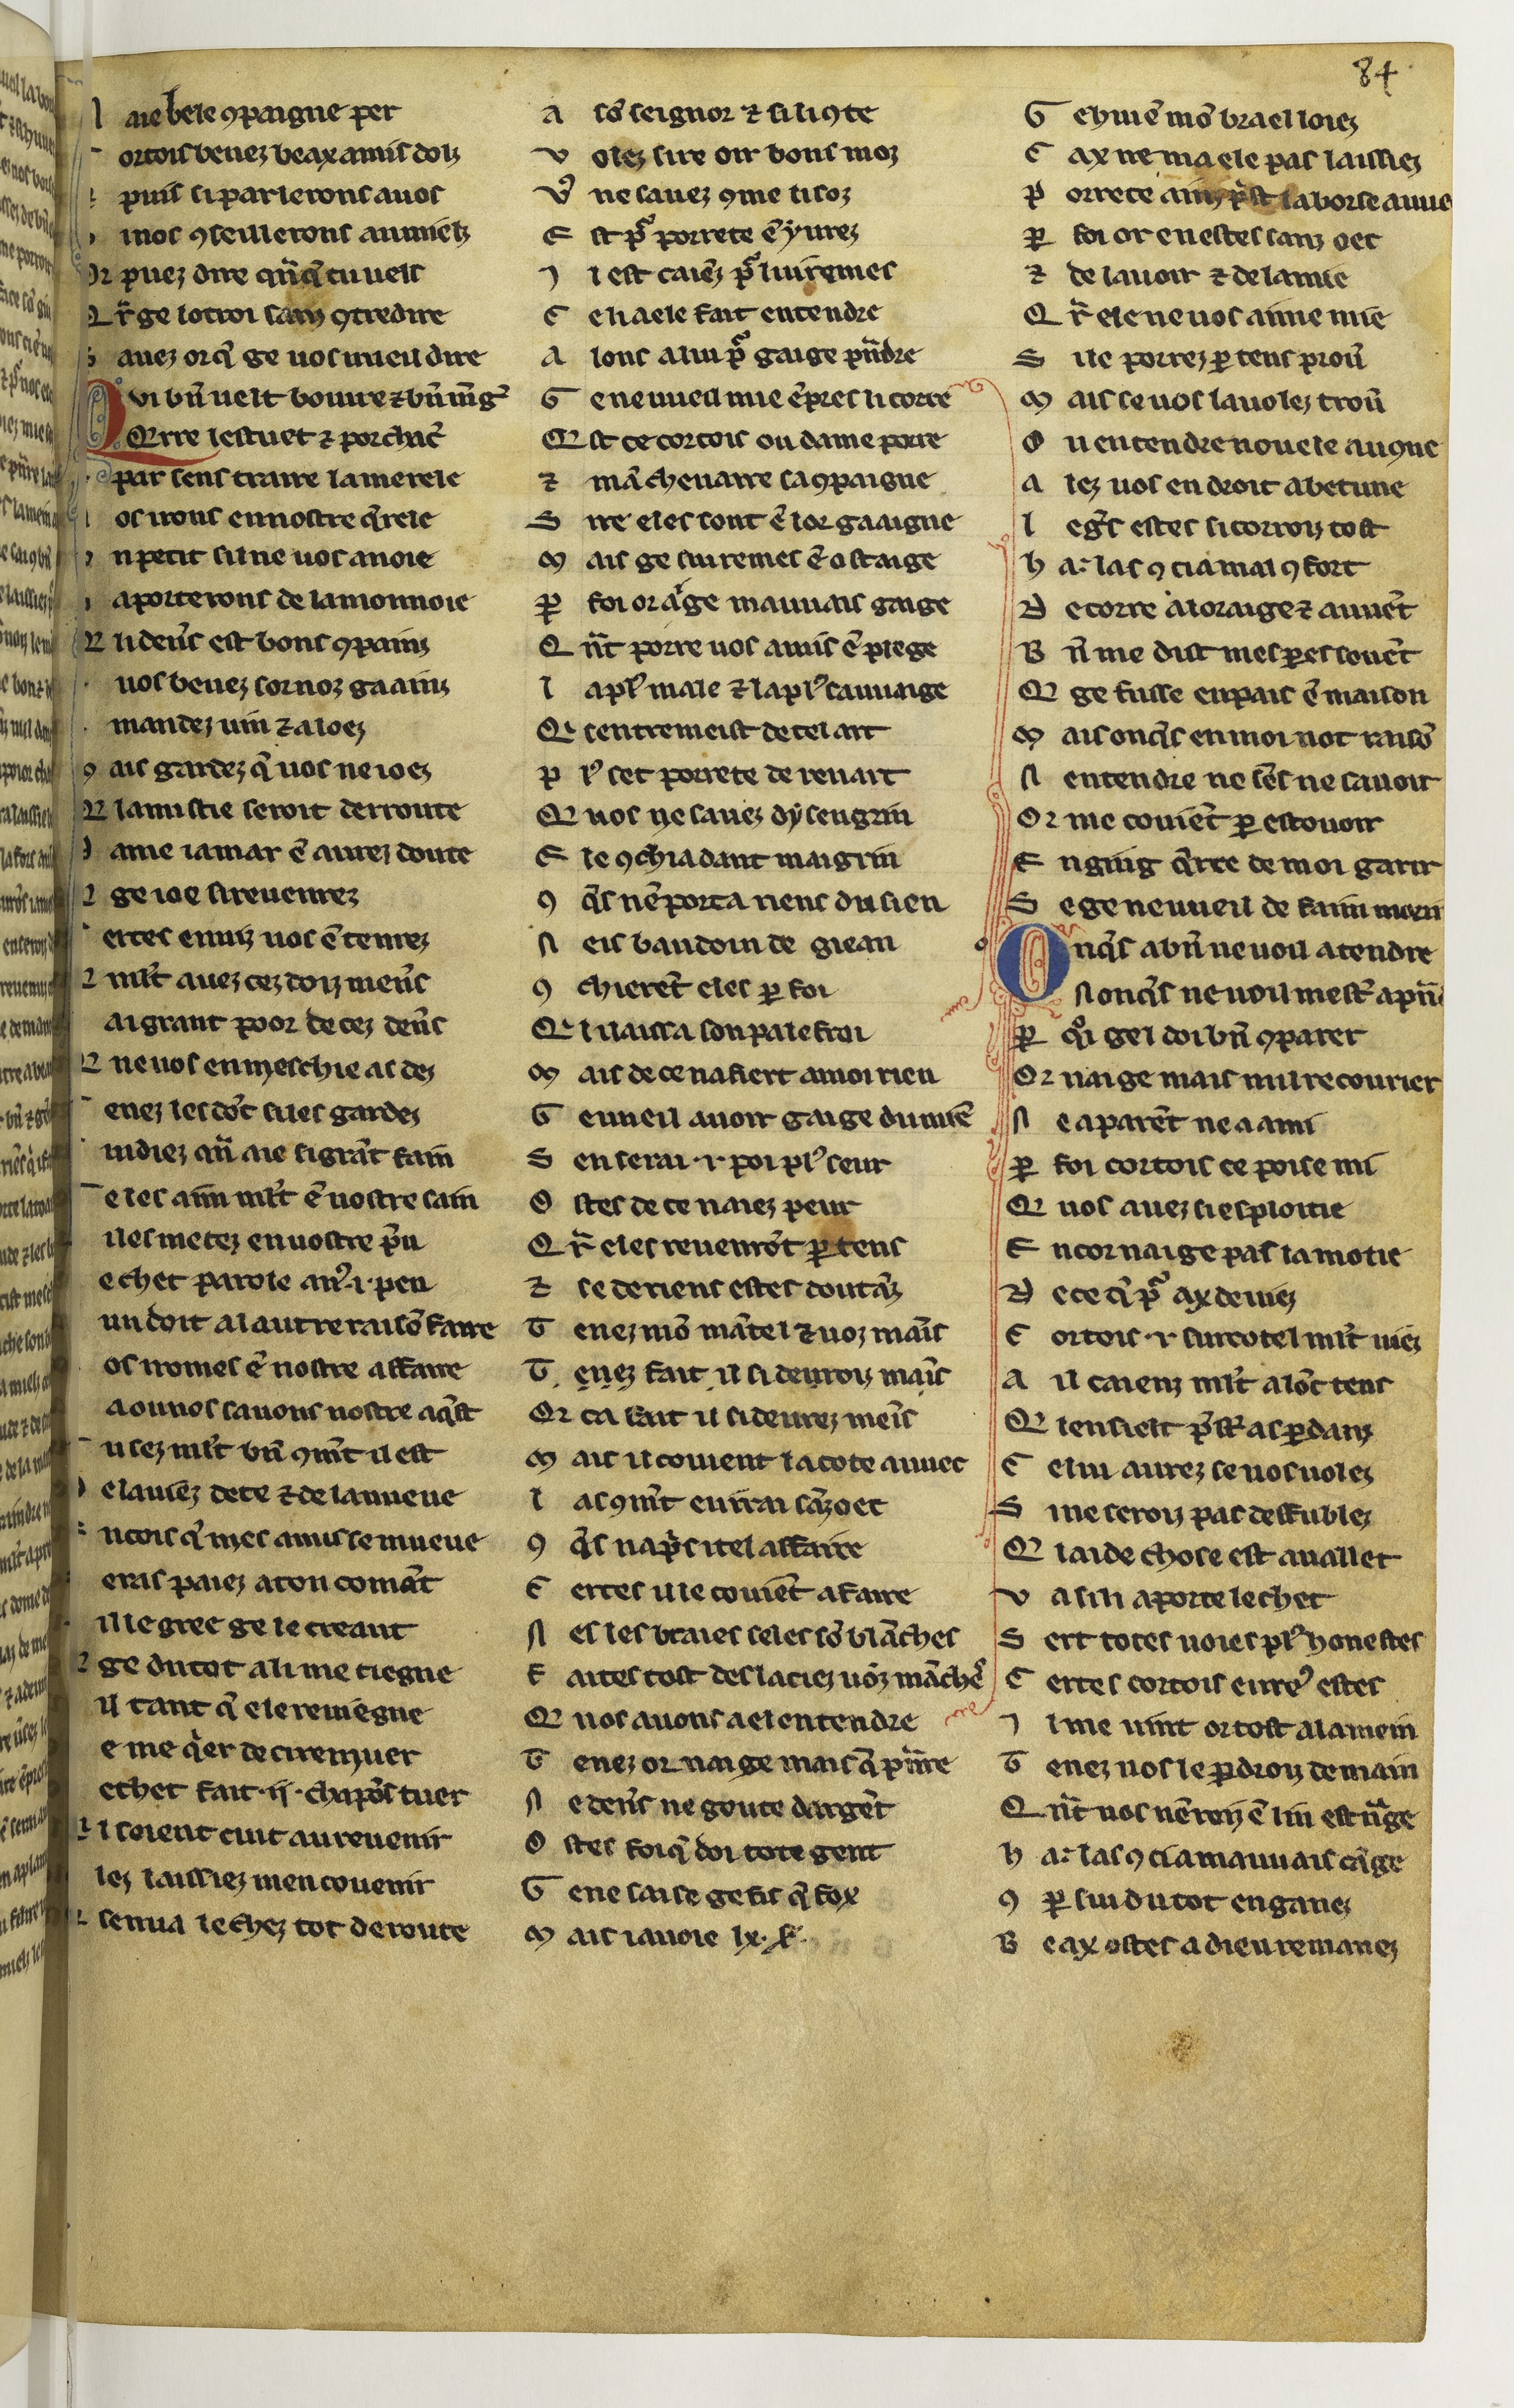 84
aie bele ꝯpaignie per
ortois beuez beax amis dolz
puis si parlerons a uos
inos ꝯseillerons au mielz
Or puez dire qũq̃ tu uels
Qr̃ ge lotroi sanz ꝯtredire
S auez or q̃ ge uos uueil dire
Qvi bñ uelt boiure ⁊ bñ mẽg̾
Qerre lestuet ⁊ porchac̾
par sens traire la merele
os irons en nostre q̃rele
n petit sil ne uos anoie
aporterons de la monnoie
li deñs est bons ꝯpainz
uos beuez sor noz gaainz
mandez uin ⁊ aloez
ais gardez q̃ uos ne ioez
lamistie seroit derroute
ame ia mar ẽ aurez doute
ge ioe si reuenrez
ertes enuiz uos ẽ tenrez
ml̃t auez cez doiz menũs
ai grant poor de cez deñs
ne uos en meschie as dez
enez les dõt si les gardez
uidiez qũ aie si grãt faim
e les aim ml̃t ẽ uostre sain
iles metez en uostre p̃u
echet parole an̾.i. peu
un doit al autre raisõ faire
os uomes ẽ nostre affaire
aou nos sauons nostre aq̃st
u sez ml̃t bñ ꝯmt̃ il est
e lausẽz dete ⁊ de lanueue
ncois q̃ mes amis se mueue
eras paiez a ton comãt
il le gree ge le creant
ge du tot a li me tiegne
il tant q̃ ele reuiẽgne
e me q̃er de ci remuer
echet fait .ij. chapõs tuer
i soient cuit au reuenir
lez laissiez men couenir
sen ua lechez tot de route
A sõ seignor ⁊ si li ꝯte
V olez sire oir bons moz
V̾ ne sauez ꝯme ti soz
E st p̃ porrete ẽyurez
I l est caiẽz p̃ liuremes
C eli a ele fait entendre
A lons a lui p̃ gaige pñdre
G e ne uueil mie ẽpres li corre
Q st ce cortois ou dame porre
⁊ mã cheuaire sa ꝯpaigne
S ire eles sont ẽ lor gaaigne
M ais ge sui remes ẽ ostaige
P̱ foi or a ge mauuais gaige
Q ñt porre uos a mis ẽ plege
L a pl̾ male ⁊ la pl̾ sauuaige
Q sentremeist de tel art
P l̾ set porrete de renart
Q uos ne sauez dysengrin
E le ꝯchia dant maigrin
9 q̃s nẽ porta riens du sien
N eis baudoin de giean
9 chierẽt eles p̱ foi
Q i laissa son palefroi
M ais de ce nafiert a moi rien
G e uueil auoir gaige du miẽ
S en serai .i. poi pl̾ seur
O stes de ce naiez peur
Q r̃ eles reuenrõt p̱tens
⁊ se de riens estes doutãz
T enez mõ mãtel ⁊ uoz maĩs
T enez fait il si deuroiz maĩs
Or ca fait il si deurez meĩs
M ais il couient la cote auuec
L as ꝯmt̃ en irai sãz oec
9 q̃s napris itel affaire
C ertes il le couiẽt a faire
N es les braies se les sõ blãches
F aites tost deslaciez uoz mãch̃
Q nos auons a el entendre
T enez or nai ge mais q̃ pr̃dre
N e deñs ne goute dargẽt
O stes foi q̃ doi tote gent
G e ne sai se ge fis q̃ fox
M ais iauoie lx. s̷.
G ehuiẽ mõ brael loiez
C ax ne ma ele pas laissiez
P orrete ainz p̃st la borse auue
P̱ foi or en estes sanz oec
⁊ de lauoir ⁊ de lamie
Q r̃ ele ne uos aime mie
S i le porrez p̱ tens prou̾
M ais se uos la uolez trou̾
O u entendre nouele auqũe
A lez uos en droit a betune
L eg̾s estes si corroiz tost
H a: las ꝯ ci a mal ꝯfort
D e corre a lor aige ⁊ au uẽt
B ñ me dist mes peres souẽt
Q ge fusse en pais ẽ maison
M ais onq̃s en moi not raisõ
N entendre ne sẽs ne sauoir
Or me couiẽt p̱ estouoir
E nging q̃rre de moi garir
S e ge ne uueil de faim morir
Onq̃s a bñ ne uoil atendre
N onq̃s ne uoil mest̾ apñd
P̱ q̃i gel doi bñ ꝯparer
Or nai ge mais nul recourier
N e a parẽt ne a ami
P̱ foi cortois ce poise mi
Q uos auez si esploitie
E ncor nai ge pas la motie
D e ce q̃ p̃ ax deuiez
C ortois .i. surcotel ml̃t uiez
A il caienz ml̃t a lõc tens
Q len si est p̃ st̾ as p̱danz
C elui aurez se uos uolez
S i ne seroiz pas desfublez
Q laide chose est a uallet
V a si li aporte lechet
S ert totes uoies pl̾ honestes
C ertes cortois eure̾ estes
I l me uint or tost a la mein
T enez uos le p̱droiz demain
Q ñt uos nẽ reij ẽ lui est nãge
H a: las ꝯ ci a mauuais cãge
9 p̱ sui du tot enganez
B eax ostes a dieu remanez